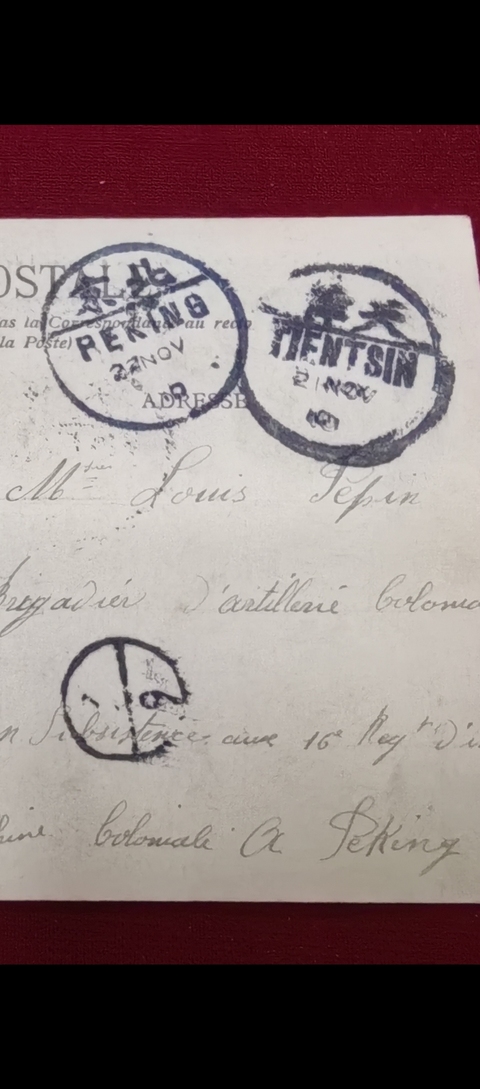 OSTALE
as la Correspondance au recto
la Poste)
京北
PEKING
22 NOV
津天
TIENTSIN
21 NOV
ADRESSE
M Louis Pépin
Brigadier d'artillerie Colonia
Subsistance aux 16e Regt d'i
Coloniale A Peking